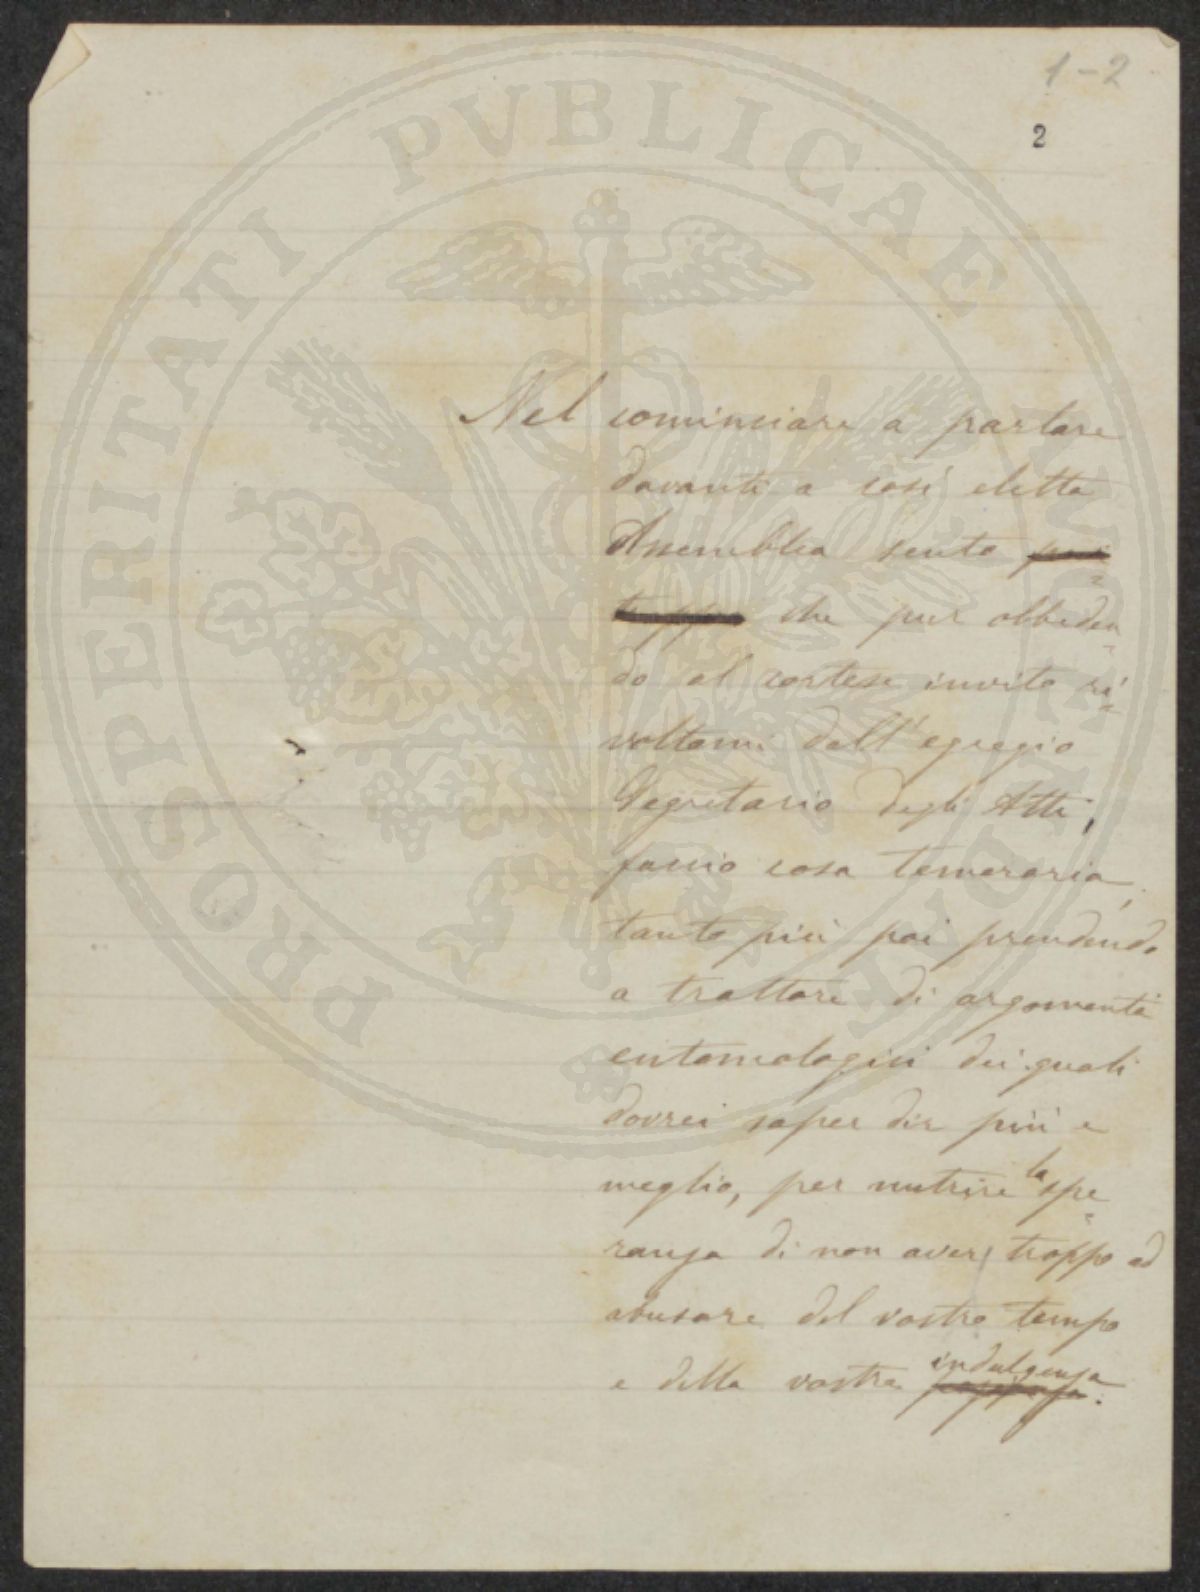 1-2
2
PROSPERITATI PVBLICAE AVGENDAE
Nel cominciare a parlare
davanti a così eletta
Assemblea sento
che pur obbeden=
do al cortese invito ri=
voltomi dall'egregio
Segretario degli Atti,
faccio cosa temeraria,
tanto più poi prendendo
a trattare di argomenti
entomologici dei quali
dovrei saper dir più e
meglio, per nutrire la spe=
ranza di non aver troppo ad
abusare del vostro tempo
e della vostra indulgenza